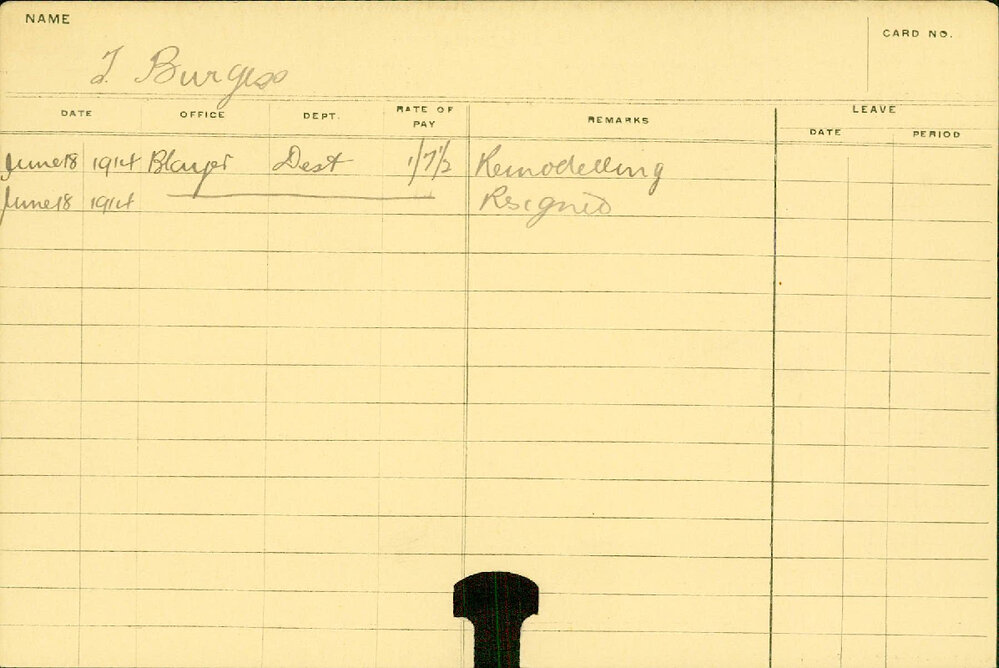 NAME
CARD NO.
Burgess
DATE OFFICE DEPT. RATE OF PAY REMARKS LEAVE
DATE PERIOD
June 18 1914 Dest 1/7½ Remodelling
June 18 1914 Resigned